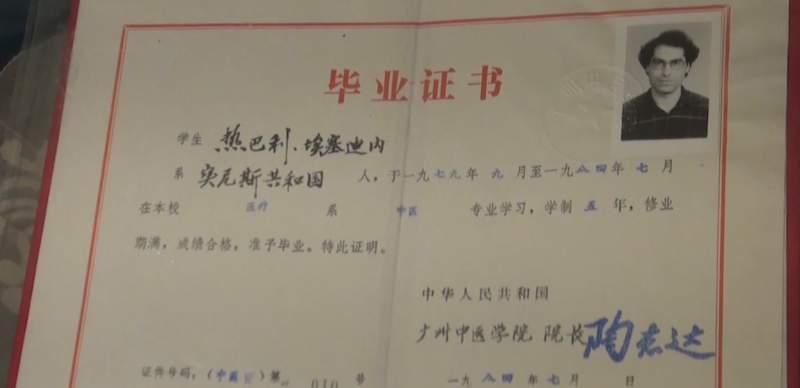 毕业证书
学生 热巴利·埃塞迪内
系 突尼斯共和国 人，于一九七九年九月至一九八四年七月
在本校 医疗 系 中医 专业学习，学制五年，修业
期满，成绩合格，准予毕业。特此证明。
中华人民共和国
广州中医学院 院长 陶志达
证件号码：（中医 ）第 010 号
一九八四年七月 日